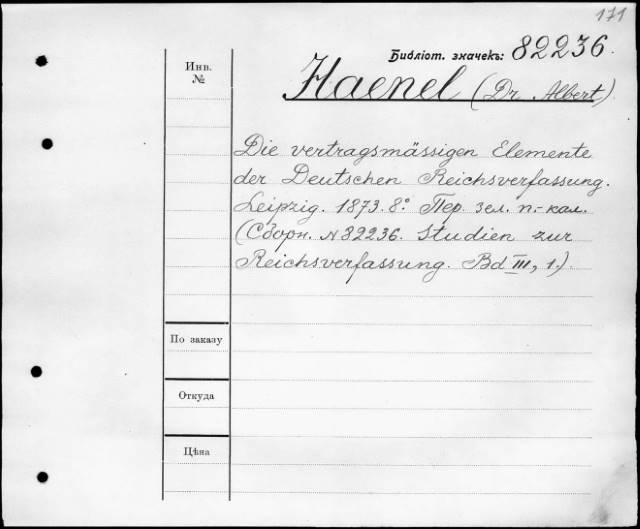 171
Библіот. значекъ: 82236.
Инв.
№
Haenel (Dr. Albert).
Die vertragsmässigen Elemente
der Deutschen Reichsverfassung.
Leipzig. 1873. 8º Пер. зел. п.-кал.
(Сборн. №82236. Studien zur
Reichsverfassung. Bd III, 1.)
По заказу
Откуда
Цѣна